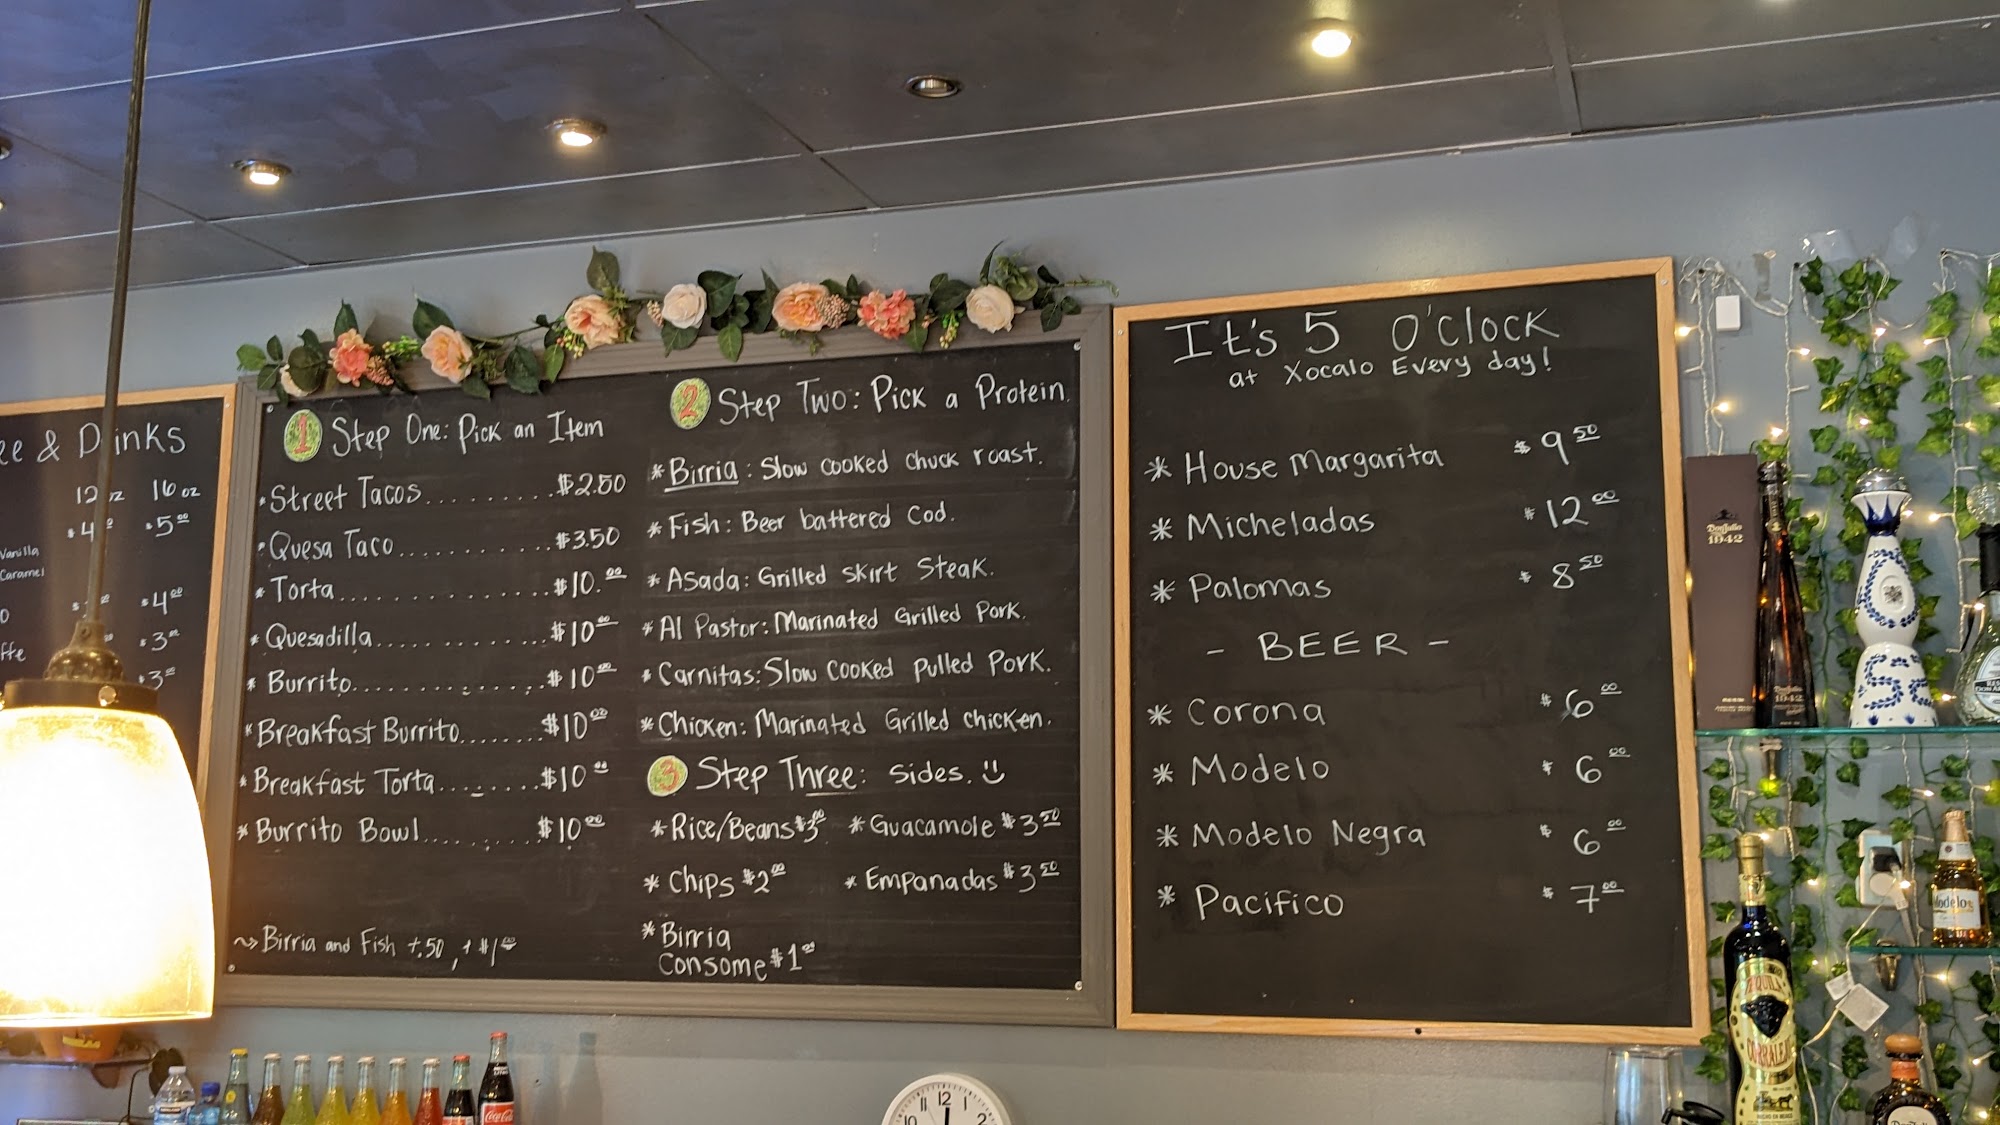 & Drinks
12 oz 16 oz
$4 $5 00
Vanilla
Caramel
$4 00
$3 00
$3 00
1 Step One: Pick an Item
* Street Tacos..........$2.50
* Quesa Taco...........$3.50
* Torta................$10.00
* Quesadilla.............$10 00
* Burrito...............$10 00
* Breakfast Burrito........$10 00
* Breakfast Torta.........$10 00
* Burrito Bowl...........$10 00
~> Birria and Fish +.50, + $1 00
2 Step Two: Pick a Protein.
* Birria: Slow cooked chuck roast.
* Fish: Beer battered Cod.
* Asada: Grilled skirt steak.
* Al Pastor: Marinated Grilled Pork.
* Carnitas: Slow cooked pulled Pork.
* Chicken: Marinated Grilled chicken.
3 Step Three: Sides.
* Rice/Beans $3 00 * Guacamole $3 50
* Chips $2 00 * Empanadas $3 50
* Birria
Consome $1 00
It's 5 O'Clock
at Xocalo Every day!
* House Margarita $9 50
* Micheladas $12 00
* Palomas $8 50
- BEER -
* Corona $6 00
* Modelo $6 00
* Modelo Negra $6 00
* Pacifico $7 00
Don Julio
1942
1942
Modelo
TEQUILA
CORRALEJO
Coca-Cola
11 12 1
10